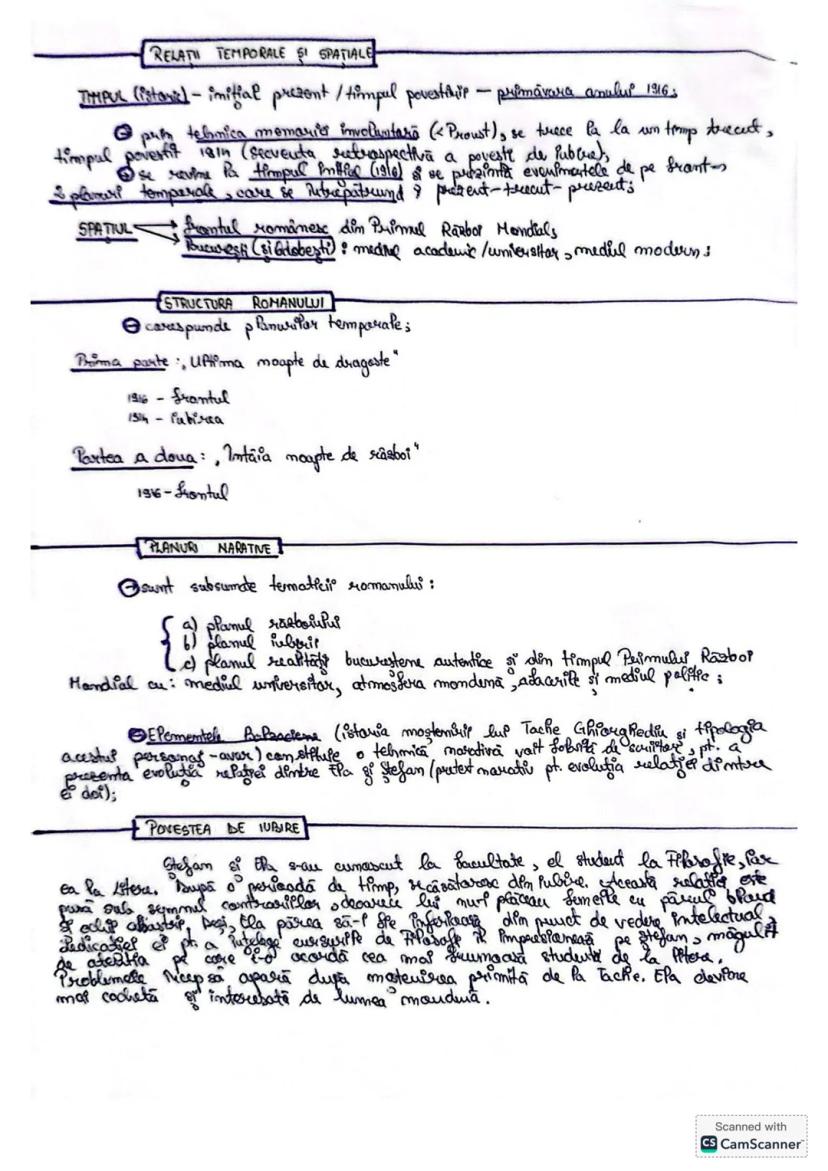 RELAȚII TEMPORALE ȘI SPAȚIALE
TIMPUL (istoric) – inițial prezent / timpul povestirii – primăvara anului 1916;
prin tehnica memoriei involuntară (< Proust), se trece la la un timp trecut,
timpul povestit 1914 (secvența retrospectivă a poveste de iubire),
se revine la timpul inițial (1916) și se prezintă evenimentele de pe front →
2 planuri temporale, care se întrepătrund: prezent-trecut-prezent;
SPAȚIUL → frontul românesc din Primul Război Mondial;
București (și Odobești): mediul academic/universitar, mediul modern;
STRUCTURA ROMANULUI
corespunde planurilor temporale;
Prima parte: „Ultima noapte de dragoste"
1916 – frontul
1914 – iubirea
Partea a doua: „Întâia noapte de război"
1916 – frontul
PLANURI NARATIVE
sunt subsumate tematicii romanului:
a) planul războiului
b) planul iubirii
c) planul realității bucureștene autentice și din timpul Primului Război
Mondial cu: mediul universitar, atmosfera mondenă, afacerile și mediul politic;
Elementele Balzaciene (istoria moștenirii lui Tache Gheorghidiu și tipologia
acestui personaj-avar) constituie o tehnică narativă voit folosită de scriitor, pt. a
prezenta evoluția relației dintre Ela și Ștefan (pretext narativ pt. evoluția relației dintre
ei doi);
POVESTEA DE IUBIRE
Ștefan și Ela s-au cunoscut la facultate, el student la Filosofie, iar
ea la Litere. După o perioadă de timp, se căsătoresc din iubire. Această relație este
pusă sub semnul contrariilor, deoarece lui nu-i plăceau femeile cu părul blond
și ochii albaștri, deși, Ela părea să-i fie inferioară din punct de vedere intelectual,
dedicației ei pt. a înțelege cursurile de Filosofie îl impresionează pe Ștefan, măgulit
de atenția pe care i-o acordă cea mai frumoasă studentă de la litere.
Problemele încep să apară după moștenirea primită de la Tache. Ela devine
mai cochetă și interesată de lumea mondenă.
Scanned with
CS CamScanner